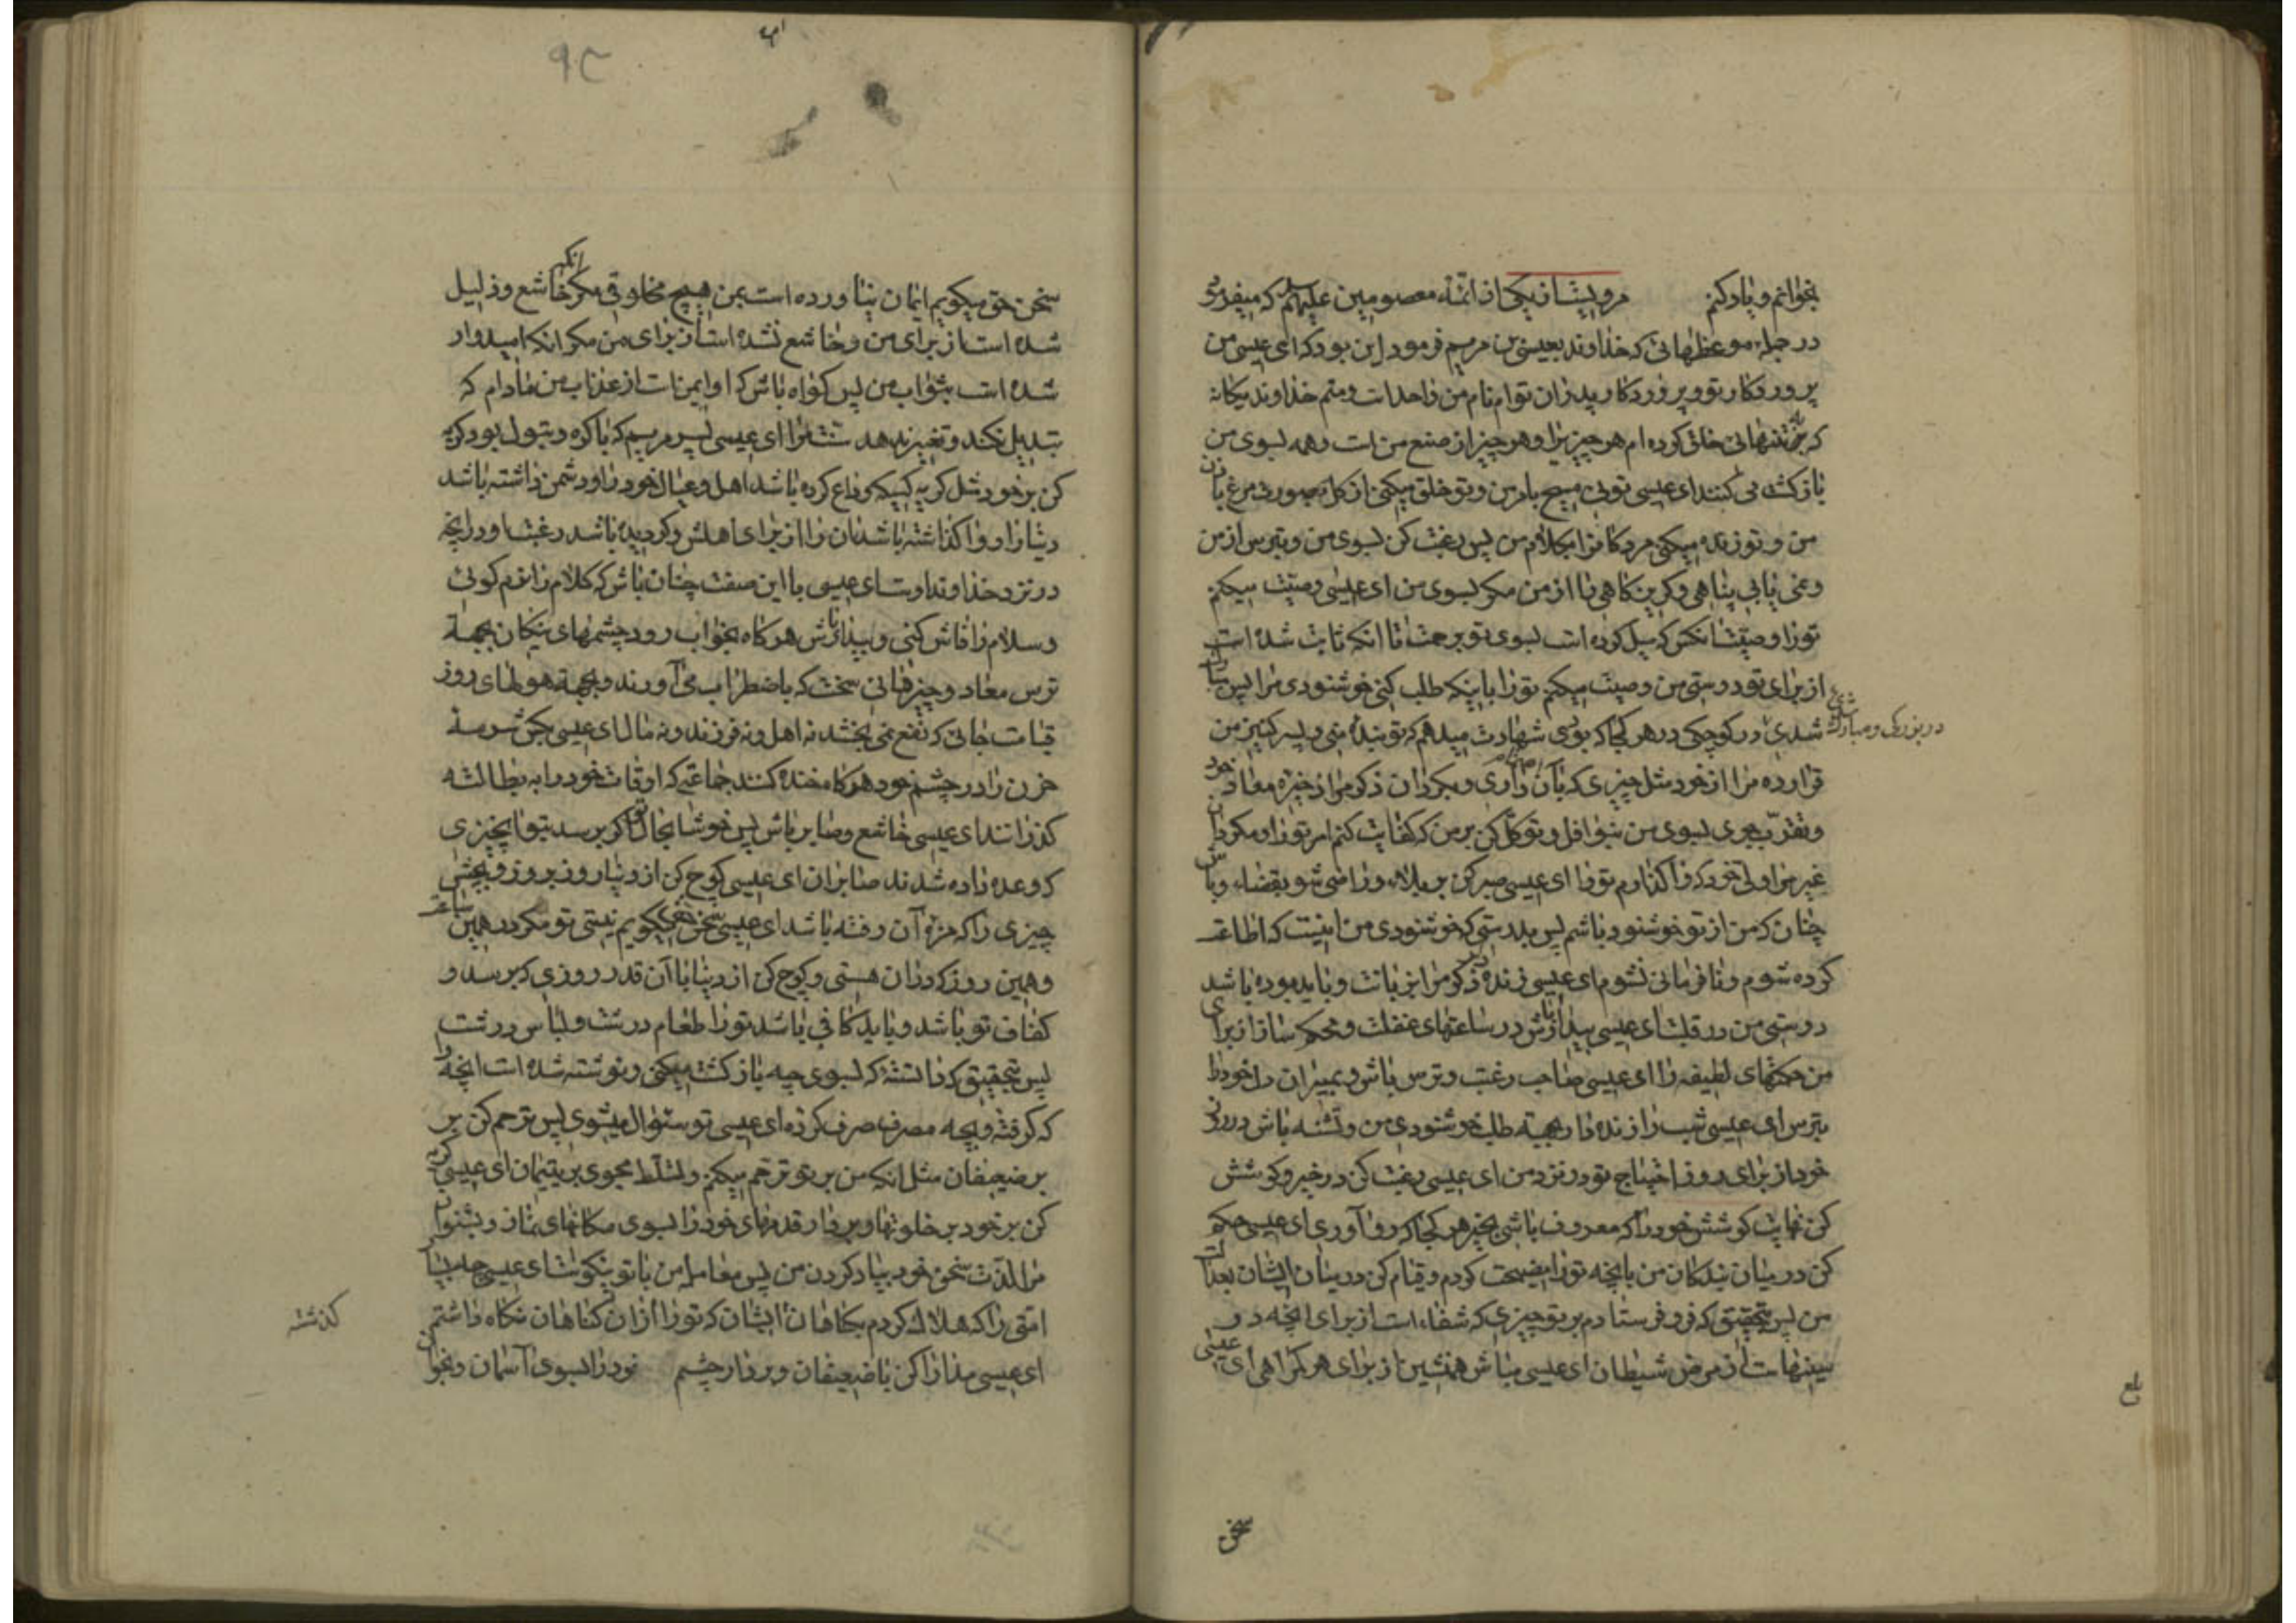 بخوانم و یاد کنم مرویست از یکی از ائمه معصومین علیهم السلام که میفرمود
در جمله موعظهائی که خداوند بعیسی بن مریم فرمود این بود که ای عیسی من
پروردکار تو و پروردکار پدران توام نام من واحد است و منم خداوند یکانه
که به تنهائی خلق کرده ام هر چیزیرا و هر چیز از صنع من است و همه بسوی من
بازکشت می کنند ای عیسی توئی مسیح بامر من و تو خلق میکنی از کل بصورت مرغ باذن
من و تو زنده میکنی مردکانرا بکلام من پس رغبت کن بسوی من و بترس از من
و نمی یابی پناهی و کریزکاهی را از من مکر بسوی من ای عیسی وصیت میکنم
تورا وصیت انکس که میل کرده است بسوی تو برحمت تا انکه ثابت شده است
از برای تو دوستی من وصیت میکنم تورا باینکه طلب کنی خوشنودی مرا پس مبارک
شدی در کوچکی در هر کجا که بوی شهادت میدهم که تو بنده منی و پسر کنیز من
در بزرکی و مبارک شدی
قرار ده مرا از خود مثل چیزی که بآن داری و بکردان ذکر مرا ذخیره معاد خود
و تقرب بجوی بسوی من بنوافل و توکل کن بر من که کفایت کنم امر تورا و مکردان
غیر مرا ولی خود که واکذارم تورا ای عیسی صبر کن بر بلاء و راضی شو بقضاء و باش
چنان که من از تو خوشنود باشم پس بدرستی که خوشنودی من اینست که اطاعت
کرده شوم و نافرمانی نشوم ای عیسی زنده دار ذکر مرا بزبانت و باید بوده باشد
دوستی من در قلبت ای عیسی بیدار باش در ساعتهای غفلت و محکم ساز از برای
من حکمتهای لطیفه را ای عیسی صاحب رغبت و ترس باش و بمیران دل خود را
بترس ای عیسی شب را زنده دار بجهة طلب خوشنودی من و تشنه باش در روز
خود از برای روز احتیاج تو در نزد من ای عیسی رغبت کن در خیر و کوشش
کن نهایت کوشش خود را که معروف باشی بخیر هر کجا که رو آوری ای عیسی حکم
کن در میان بندکان من بانچه تورا نصیحت کردم و قیام کن در میان ایشان بعدالت
من پس بتحقیق که فرو فرستادم بر تو چیزی که شفاء است از برای انچه در
سینهاست از مرض شیطان ای عیسی مباش همنشین از برای هر کمراهی ای عیسی
بلغ
سخن
۹۳
سخن حق میکویم ایمان نیاورده است بمن هیچ مخلوقی مکر انکه خاشع و ذلیل
شده است از برای من و خاشع نشده است از برای من مکر انکه امیدوار
شده است بثواب من پس کواه باش که او ایمن است از عذاب من مادام که
تبدیل نکند و تغییر ندهد سنت مرا ای عیسی پسر مریم که باکره و بتول بود کریه
کن بر خود مثل کریه کسیکه وداع کرده باشد اهل و عیال خود را و دشمن داشته باشد
دنیا را و واکذاشته باشد ان را از برای اهلش و کردیده باشد رغبت او در انچه
در نزد خداوند اوست ای عیسی با این صفت چنان باش که کلام را نرم کوئی
و سلام را فاش کنی و بیدار باش هرکاه بخواب رود چشمهای نیکان بجهة
ترس معاد و چیزهائی سخت که باضطراب می آورند و بجهة هولهای روز
قیامت جائی که نفع نمی بخشد نه اهل و نه فرزند و نه مال ای عیسی بکش سرمه
حزن را در چشم خود هرکاه خنده کنند جماعتی که اوقات خود را به بطالت
کذرانند ای عیسی خاشع و صابر باش پس خوشا بحال تو اکر برسد بتو انچیزی
که وعده داده شدند صابران ای عیسی کوچ کن از دنیا روز بروز و بچش
چیزی را که مزه آن رفته باشد ای عیسی سخن حق میکویم نیستی تو مکر در همین ساعت
و همین روز که دران هستی و کوچ کن از دنیا با آن قدر روزی که برسد و
کفاف تو باشد و باید کافی باشد تورا طعام درشت و لباس درشت
پس بتحقیق که دانسته که بسوی چه بازکشت میکنی و نوشته شده است انچه را
که کرفته و بچه مصرف صرف کرده ای عیسی تو سئوال میشوی پس ترحم کن بر
بر ضعیفان مثل انکه من بر تو ترحم میکنم و تسلط مجوی بر یتیمان ای عیسی کریه
کن بر خود در خلوتها و بردار قدمهای خود را بسوی مکانهای نماز و بشنوان
مرا لذت سخن خود بیاد کردن من پس معامله من با تو نیکوست ای عیسی چه بسیار
امتی را که هلاک کردم بکناهان ایشان که تورا از آن کناهان نکاه داشتم
کذشته
ای عیسی مدارا کن با ضعیفان و بردار چشم خود را بسوی آسمان و بخوان